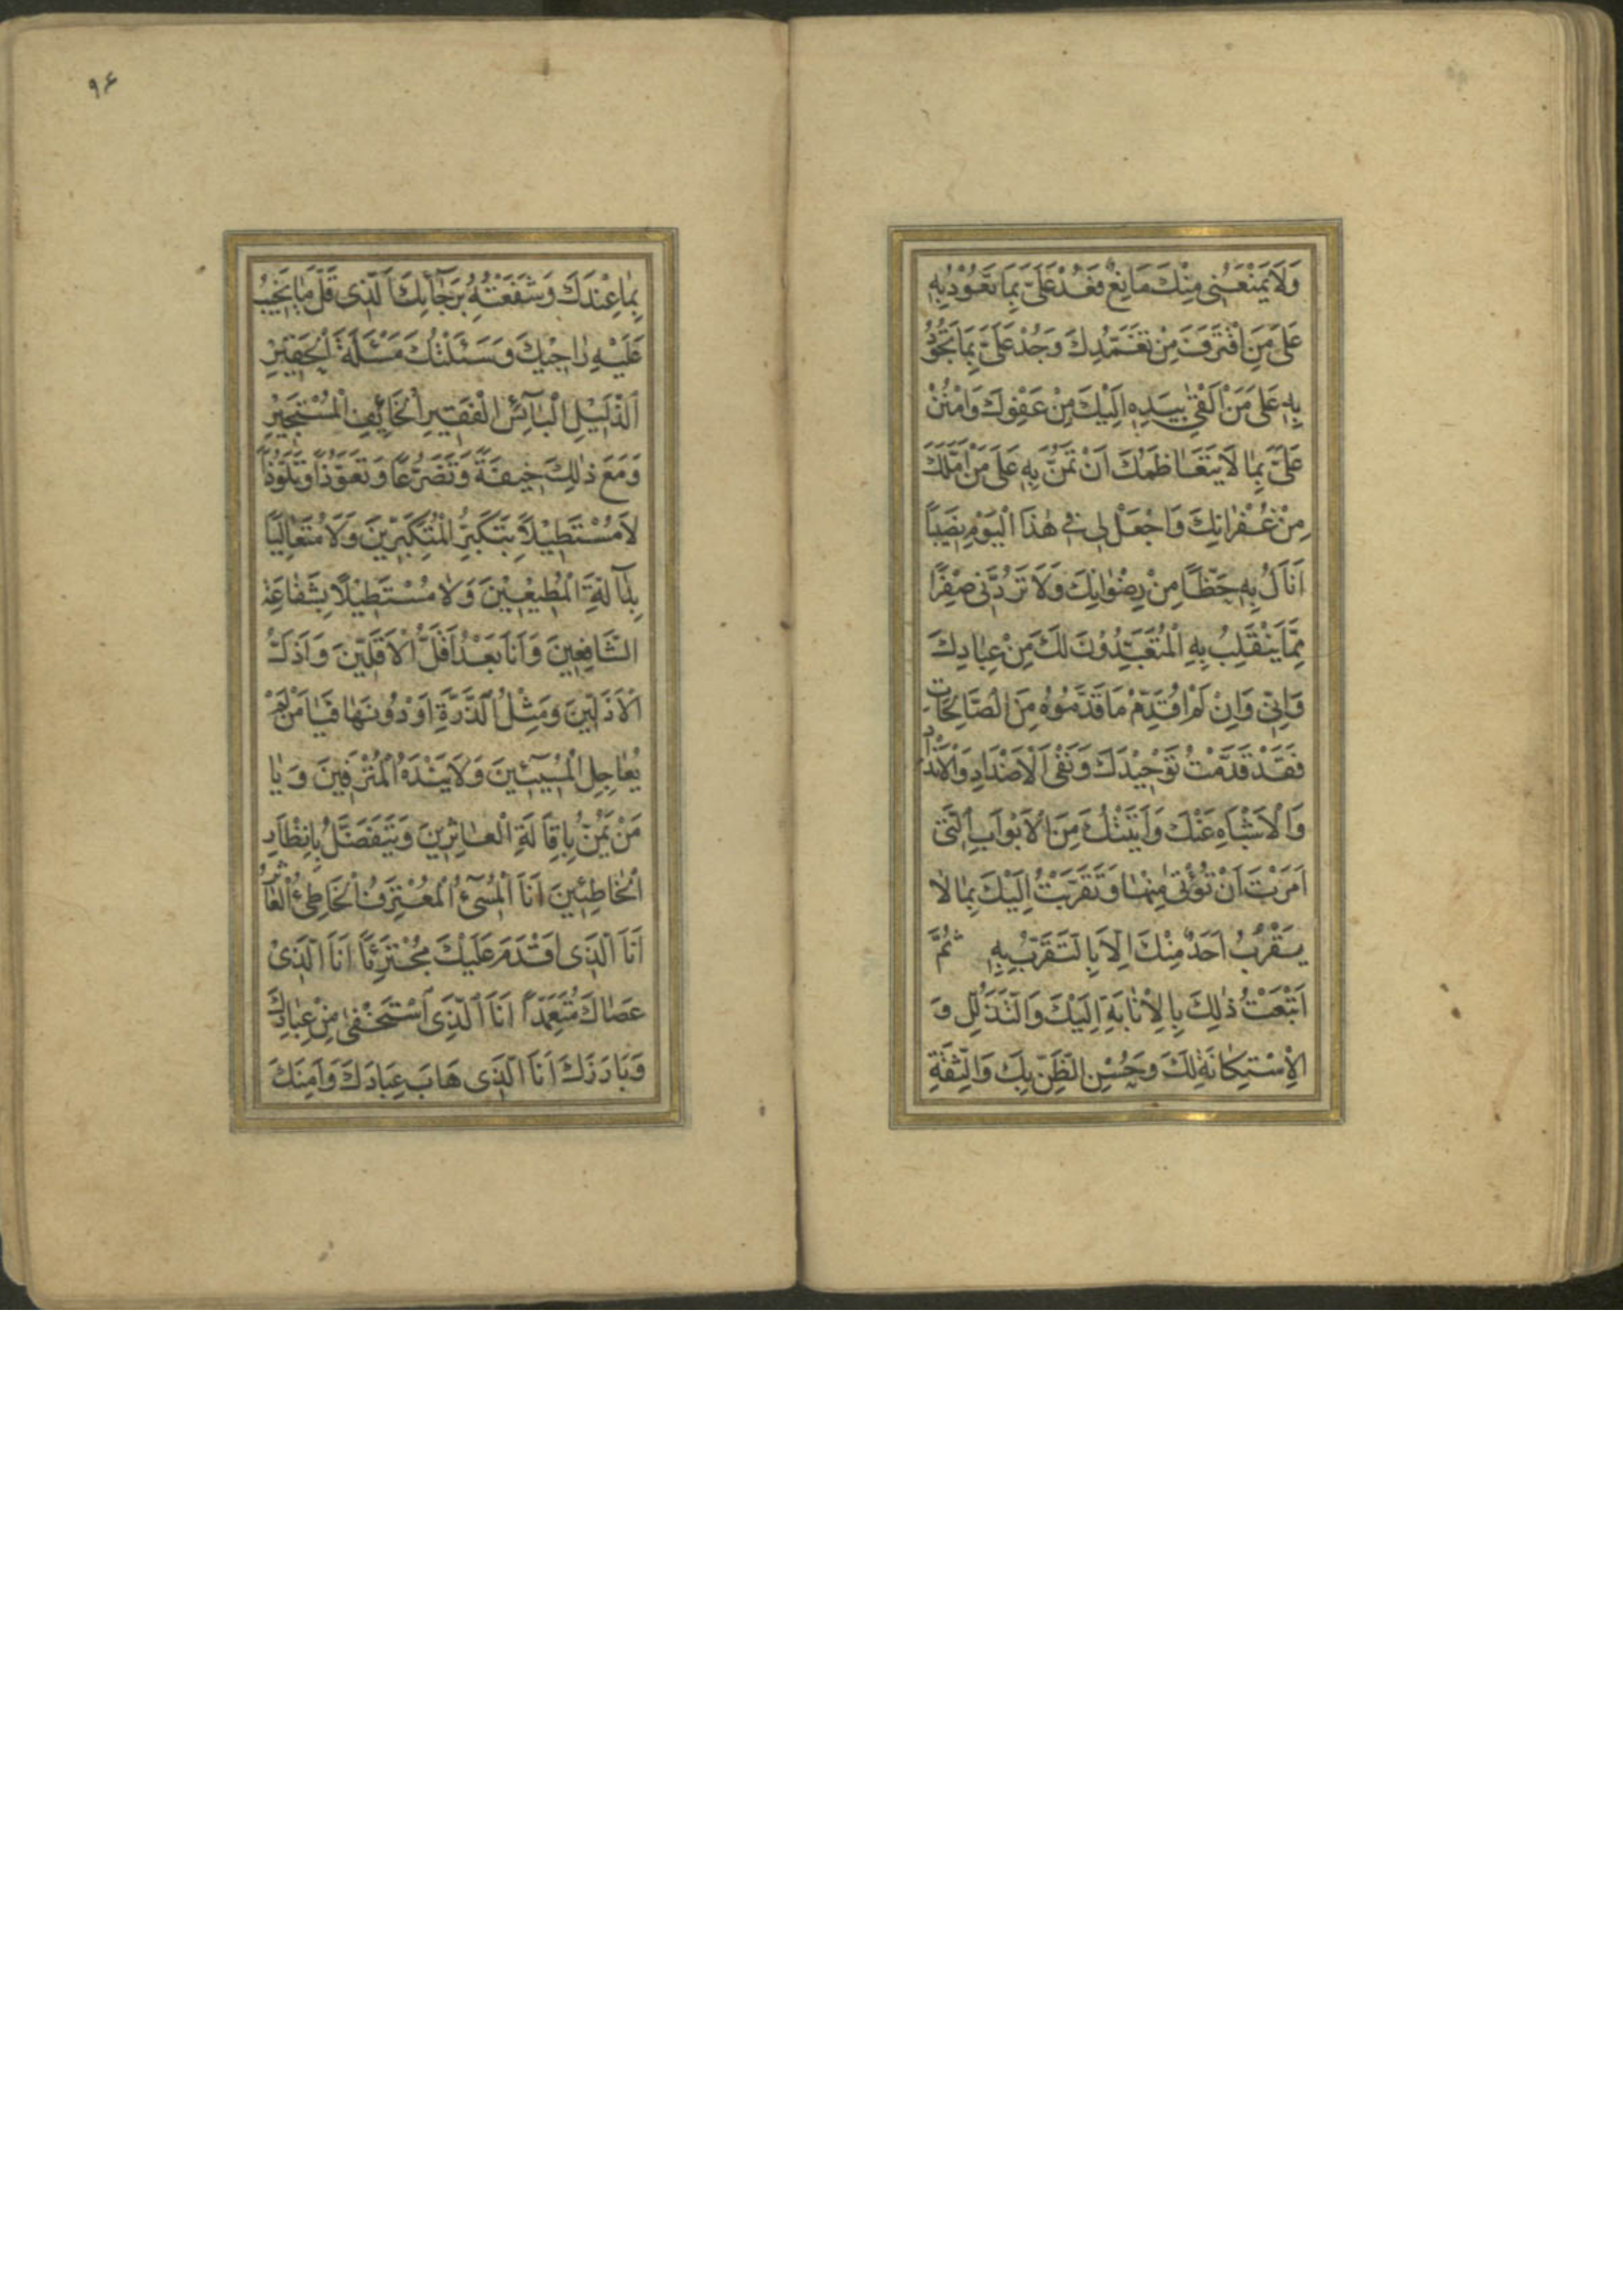 وَلَا يَمْنَعُنِي مِنْكَ مَانِعٌ فَعُدْ عَلَيَّ بِمَا تَعُوْدُ بِهِ
عَلَى مَنِ اقْتَرَفَ مِنْ تَغَمُّدِكَ وَجُدْ عَلَيَّ بِمَا تَجُوْدُ
بِهِ عَلَى مَنْ اَلْقَى بِيَدِهِ اِلَيْكَ مِنْ عَفْوِكَ وَامْنُنْ
عَلَيَّ بِمَا لَا يَتَعَاظَمُكَ اَنْ تَمُنَّ بِهِ عَلَى مَنْ اَمَّلَكَ
مِنْ غُفْرَانِكَ وَاجْعَلْ لِي فِي هٰذَا الْيَوْمِ نَصِيبًا
اَنَالُ بِهِ حَظًّا مِنْ رِضْوَانِكَ وَلَا تَرُدَّنِي صِفْرًا
مِمَّا يَنْقَلِبُ بِهِ الْمُتَعَبِّدُوْنَ لَكَ مِنْ عِبَادِكَ
وَاِنِّي وَاِنْ لَمْ اُقَدِّمْ مَا قَدَّمُوْهُ مِنَ الصَّالِحَاتِ
فَقَدْ قَدَّمْتُ تَوْحِيْدَكَ وَنَفْيَ الْاَضْدَادِ وَالْاَنْدَادِ
وَالْاَشْبَاهِ عَنْكَ وَاَتَيْتُكَ مِنَ الْاَبْوَابِ الَّتِي
اَمَرْتَ اَنْ تُؤْتٰى مِنْهَا وَتَقَرَّبْتُ اِلَيْكَ بِمَا لَا
يَقْرُبُ اَحَدٌ مِنْكَ اِلَّا بِالتَّقَرُّبِ بِهِ ثُمَّ
اَتْبَعْتُ ذٰلِكَ بِالْاِنَابَةِ اِلَيْكَ وَالتَّذَلُّلِ وَ
الْاِسْتِكَانَةِ لَكَ وَحُسْنِ الظَّنِّ بِكَ وَالثِّقَةِ
٩۶
بِمَا عِنْدَكَ وَشَفَعْتُهُ بِرَجَآئِكَ الَّذِي قَلَّ مَا يَخِيْبُ
عَلَيْهِ رَاجِيْكَ وَسَئَلْتُكَ مَسْئَلَةَ الْحَقِيْرِ
الذَّلِيْلِ الْبَآئِسِ الْفَقِيْرِ الْخَائِفِ الْمُسْتَجِيْرِ
وَمَعَ ذٰلِكَ خِيْفَةً وَتَضَرُّعًا وَتَعَوُّذًا وَتَلَوُّذًا
لَا مُسْتَطِيْلًا بِتَكَبُّرِ الْمُتَكَبِّرِيْنَ وَلَا مُتَعَالِيًا
بِدَآلَّةِ الْمُطِيْعِيْنَ وَلَا مُسْتَطِيْلًا بِشَفَاعَةِ
الشَّافِعِيْنَ وَاَنَا بَعْدُ اَقَلُّ الْاَقَلِّيْنَ وَاَذَلُّ
الْاَذَلِّيْنَ وَمِثْلُ الذَّرَّةِ اَوْ دُوْنَهَا فَيَا مَنْ لَمْ
يُعَاجِلِ الْمُسِيْئِيْنَ وَلَا يَنْدَهُ الْمُتْرَفِيْنَ وَيَا
مَنْ يَمُنُّ بِاِقَالَةِ الْعَاثِرِيْنَ وَيَتَفَضَّلُ بِاِنْظَارِ
الْخَاطِئِيْنَ اَنَا الْمُسِيْءُ الْمُعْتَرِفُ الْخَاطِئُ الْعَاثِرُ
اَنَا الَّذِي اَقْدَمَ عَلَيْكَ مُجْتَرِئًا اَنَا الَّذِيْ
عَصَاكَ مُتَعَمِّدًا اَنَا الَّذِي اسْتَخْفٰى مِنْ عِبَادِكَ
وَبَارَزَكَ اَنَا الَّذِي هَابَ عِبَادَكَ وَاَمِنَكَ